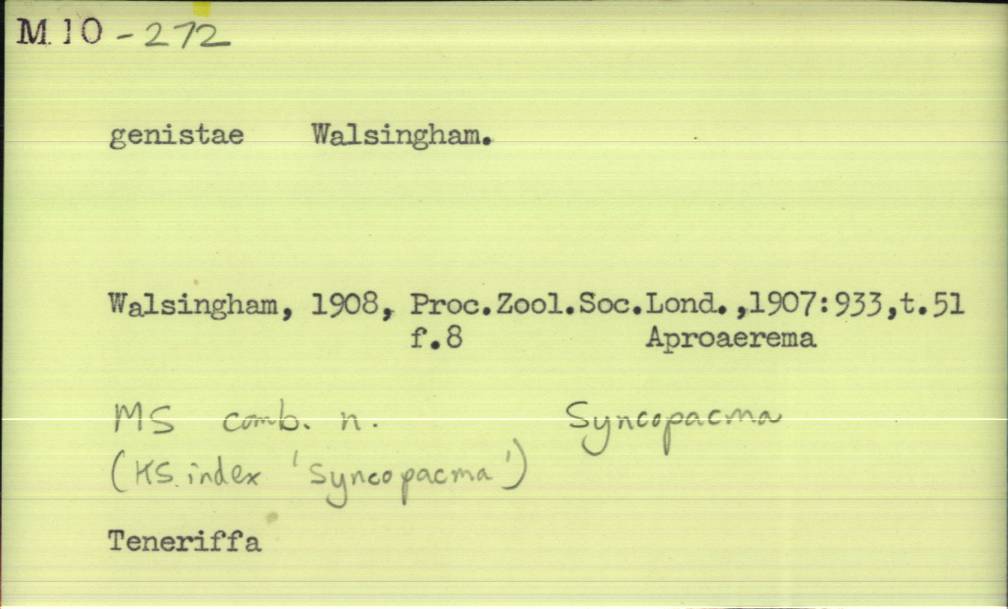 M 10 - 272
genistae Walsingham.
Walsingham, 1908, Proc.Zool.Soc.Lond.,1907:933,t.51
f.8 Aproaerema
MS comb. n. Syncopacma
(KS. index 'Syncopacma')
Teneriffa